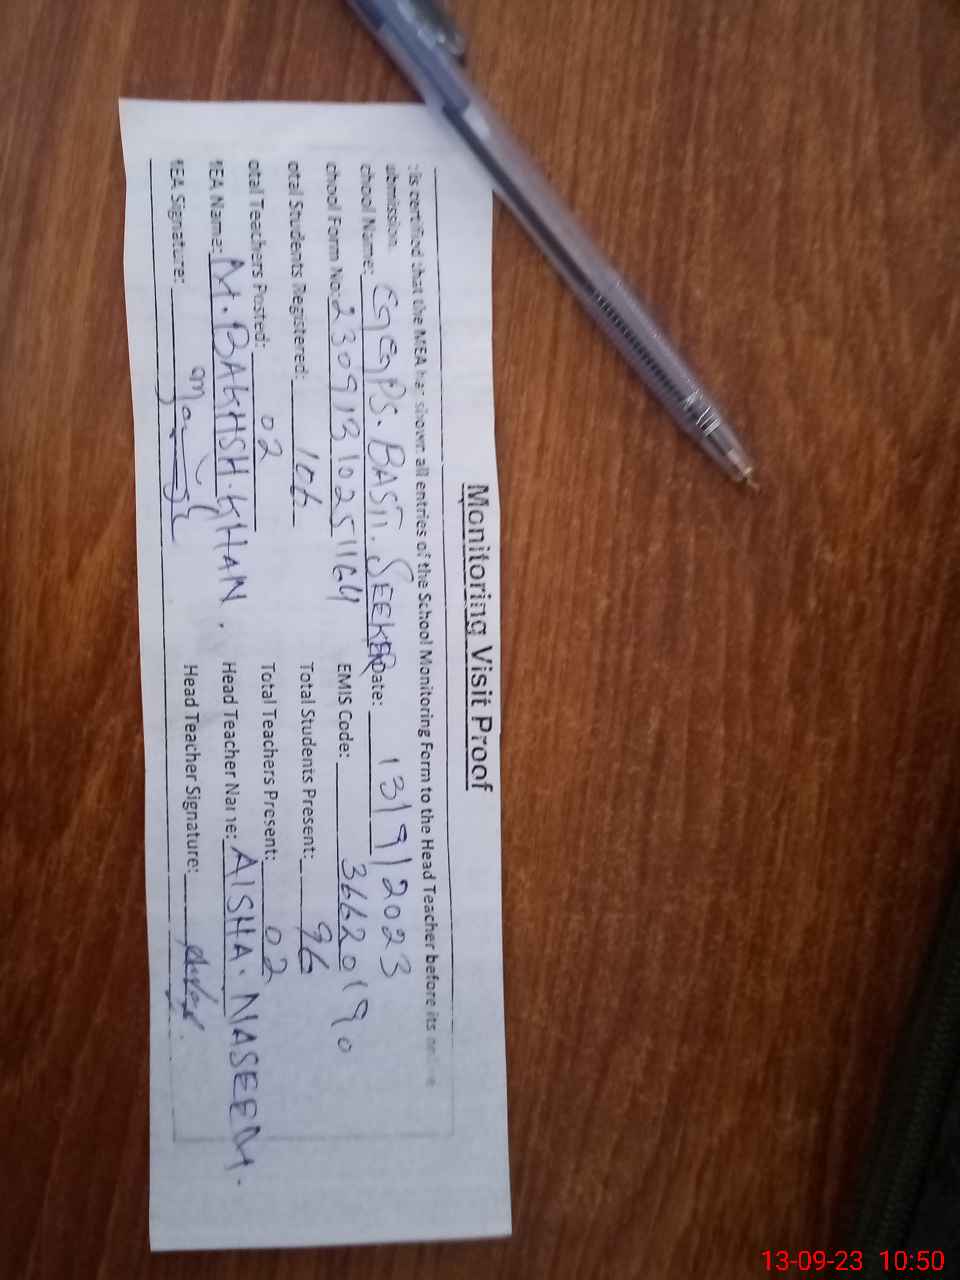 Monitoring Visit Proof
is certified that the MEA has shown all entries of the School Monitoring Form to the Head Teacher before its online
ubmission.
chool Name: GGPS. BASTI. SEEKER Date: 13/9/2023
chool Form No: 2309131025 1164 EMIS Code: 36620190
otal Students Registered: 106 Total Students Present: 96
otal Teachers Posted: 02 Total Teachers Present: 02
MEA Name: M. BAKHSH. KHAN. Head Teacher Name: AISHA. NASEEM.
MEA Signature: Head Teacher Signature:
13-09-23 10:50